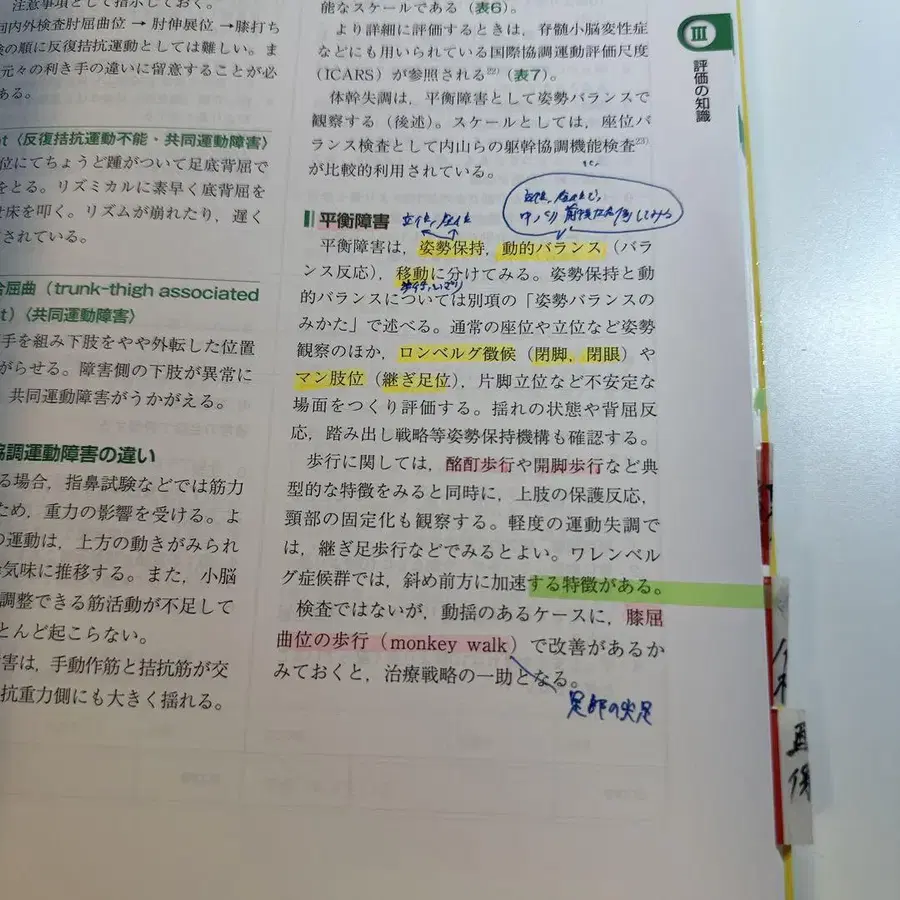 注意事項として指示しておく。
回内外検査肘屈曲位 → 肘伸展位 → 膝打ち
の順に反復拮抗運動としては難しい。ま
元々の利き手の違いに留意することが必
ある。
〈反復拮抗運動不能・共同運動障害〉
位にてちょうど踵がついて足底背屈で
をとる。リズミカルに素早く底背屈を
せ床を叩く。リズムが崩れたり，遅く
されている。
屈曲（trunk-thigh associated
〈共同運動障害〉
手を組み下肢をやや外転した位置
がらせる。障害側の下肢が異常に
共同運動障害がうかがえる。
協調運動障害の違い
る場合，指鼻試験などでは筋力
ため，重力の影響を受ける。よ
の運動は，上方の動きがみられ
気味に推移する。また，小脳
調整できる筋活動が不足して
とんど起こらない。
害は，手動作筋と拮抗筋が交
抗重力側にも大きく揺れる。
能なスケールである（表6）。
より詳細に評価するときは，脊髄小脳変性症
などにも用いられている国際協調運動評価尺度
（ICARS）が参照される²²⁾（表7）。
体幹失調は，平衡障害として姿勢バランスで
観察する（後述）。スケールとしては，座位バ
ランス検査として内山らの躯幹協調機能検査²³⁾
が比較的利用されている。
立位，座位で，
平衡障害 立位，座位
平衡障害は，姿勢保持，動的バランス（バラ
ンス反応），移動に分けてみる。姿勢保持と動
的バランスについては別項の「姿勢バランスの
みかた」で述べる。通常の座位や立位など姿勢
観察のほか，ロンベルグ徴候（閉脚，閉眼）や
マン肢位（継ぎ足位），片脚立位など不安定な
場面をつくり評価する。揺れの状態や背屈反
応，踏み出し戦略等姿勢保持機構も確認する。
歩行に関しては，酩酊歩行や開脚歩行など典
型的な特徴をみると同時に，上肢の保護反応，
頸部の固定化も観察する。軽度の運動失調で
は，継ぎ足歩行などでみるとよい。ワレンベル
グ症候群では，斜め前方に加速する特徴がある。
検査ではないが，動揺のあるケースに，膝屈
曲位の歩行（monkey walk）で改善があるか
みておくと，治療戦略の一助となる。
足部の尖足
III
評価の知識